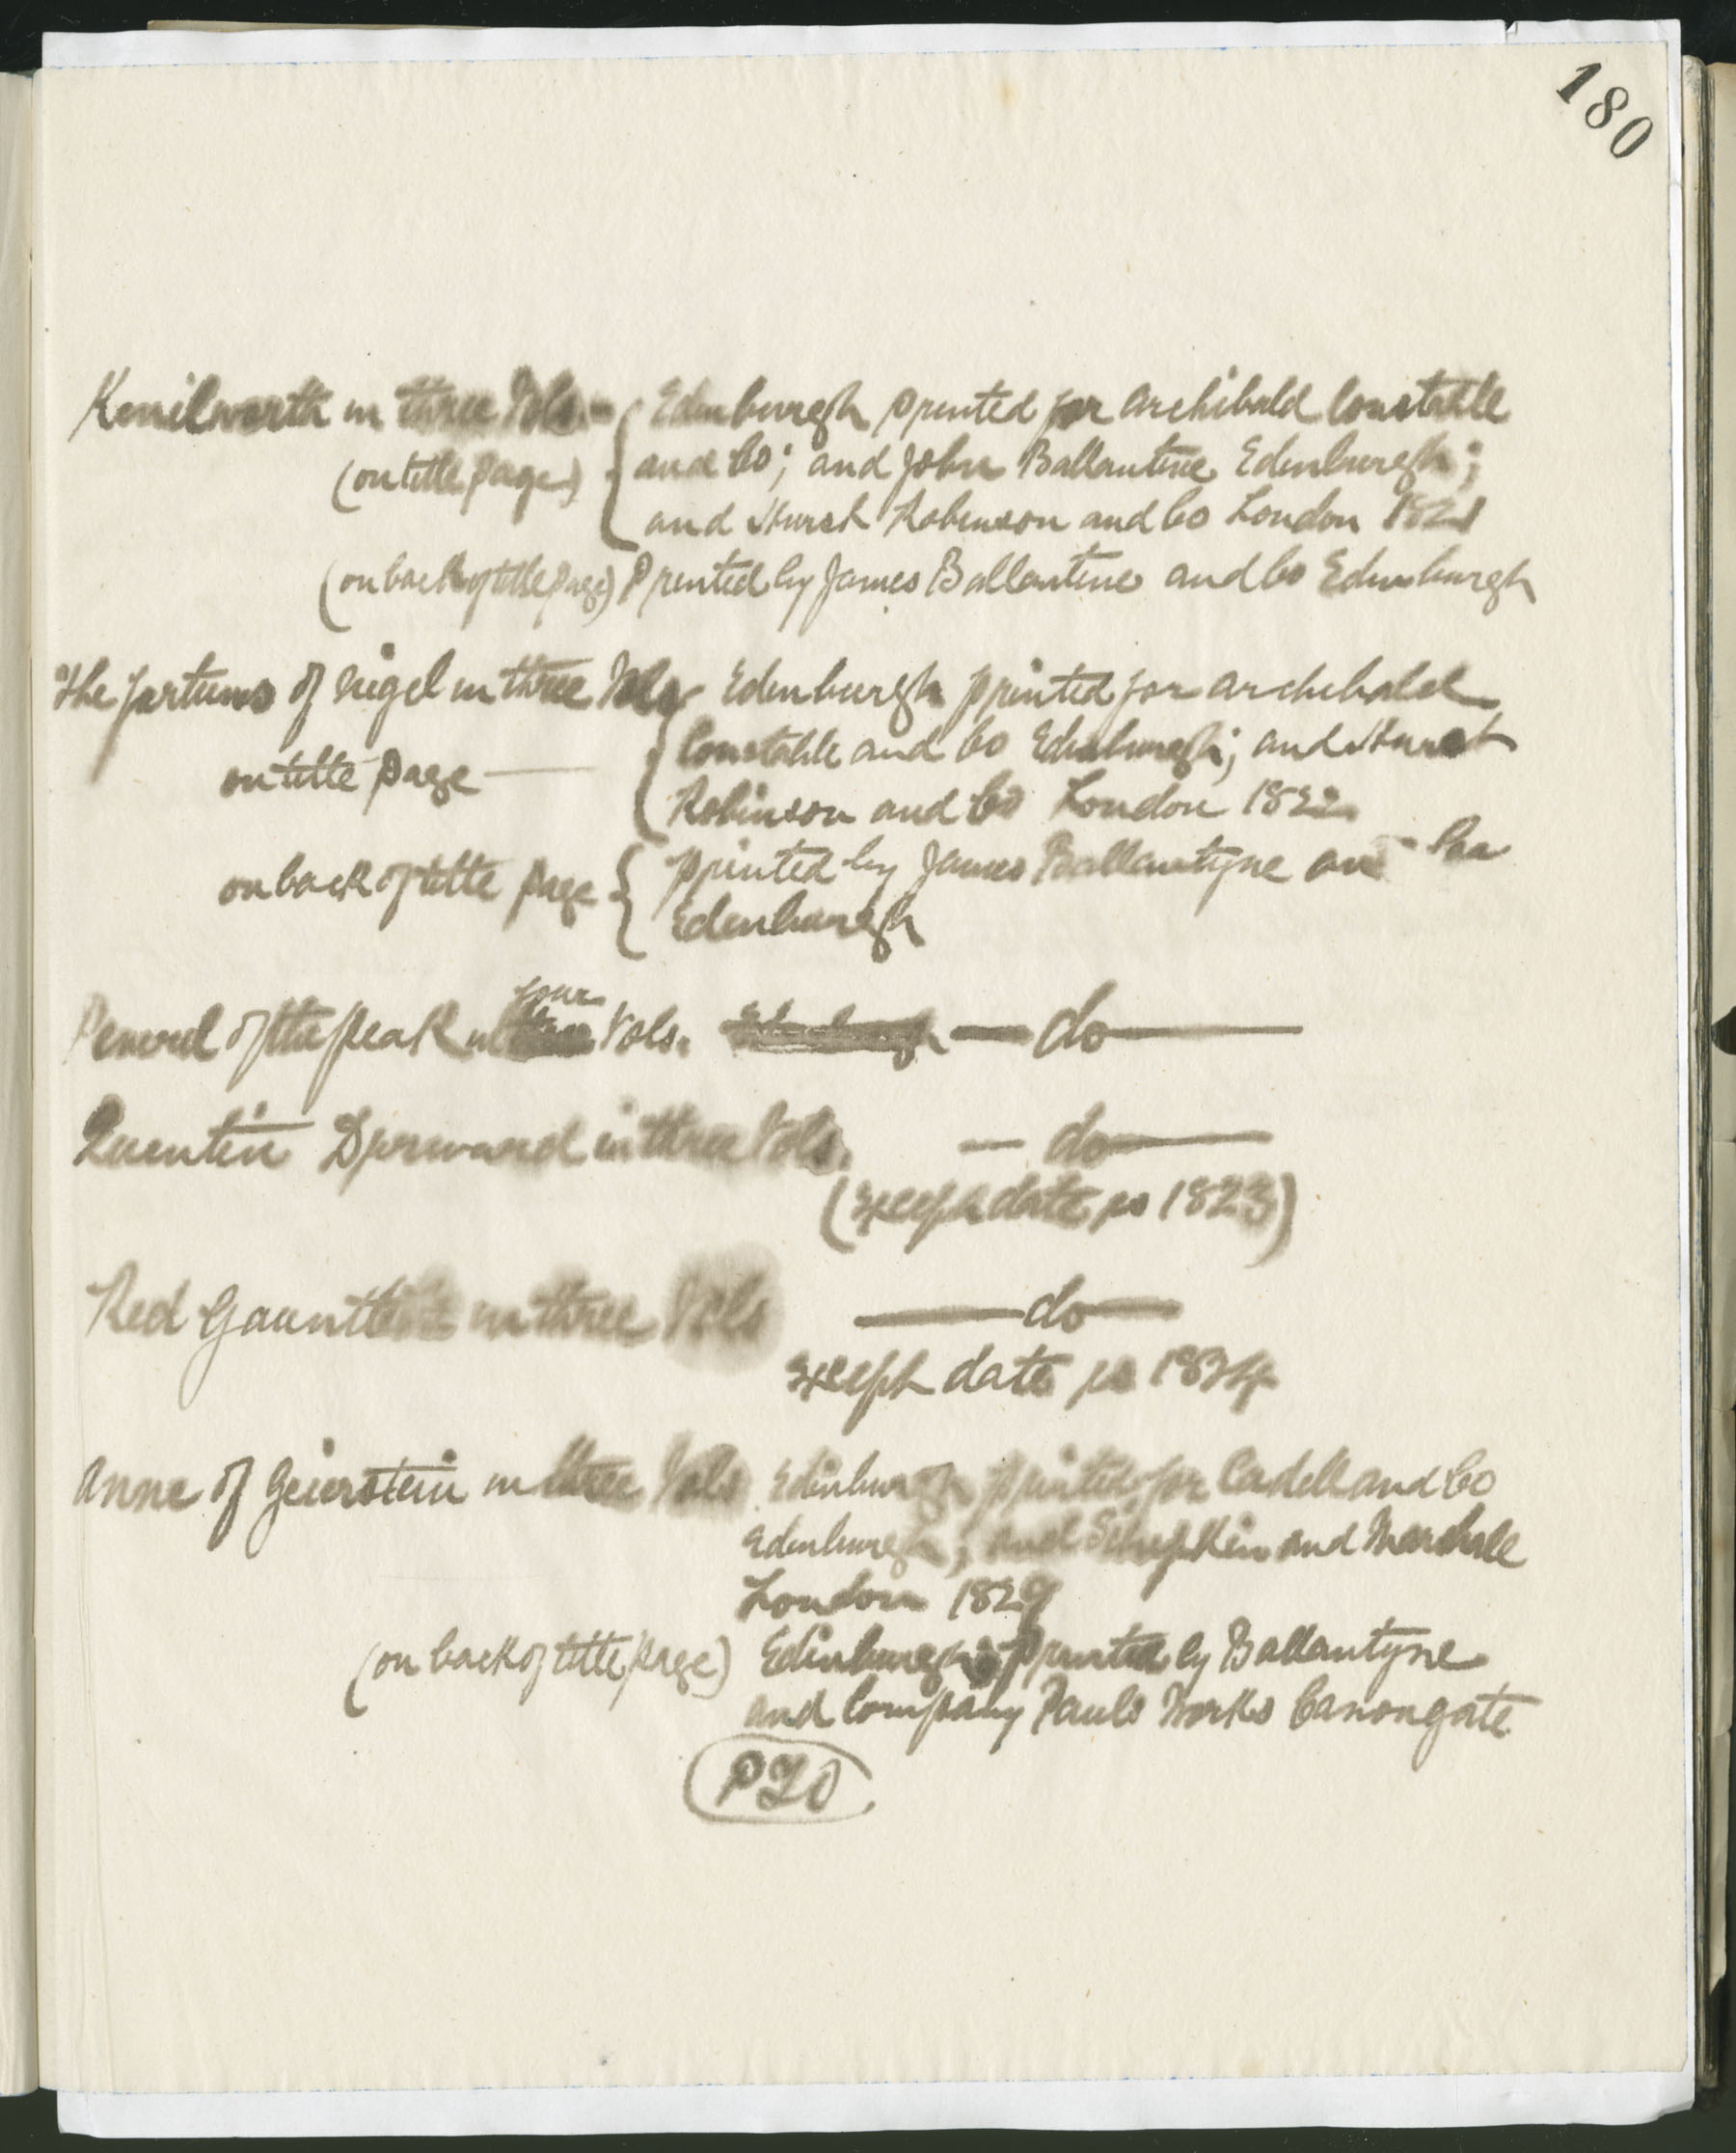 180
Kenilworth in three Vols. - Edinburgh printed for Archibald Constable
(on title page) and Co; and John Ballantine Edinburgh;
and Hurst Robinson and Co London 1821
(on back of title page) Printed by James Ballantine and Co Edinburgh
The fortunes of Nigel in three Vols Edinburgh printed for Archibald
Constable and Co Edinburgh; and Hurst
on title page —
Robinson and Co London 1822
on back of title page printed by James Ballantyne and
Edinburgh
Peveril of the peak in three four Vols. Edinburgh — do —
Quentin Durward in three Vols. — do —
(except date is 1823)
Red Gauntlet in three Vols — do —
except date is 1824
Anne of Geierstein in three Vols Edinburgh printed for Cadell and Co
Edinburgh; and Simpkin and Marshall
London 1829
(on back of title page) Edinburgh printed by Ballantyne
and Company Pauls Works Canongate
PTO